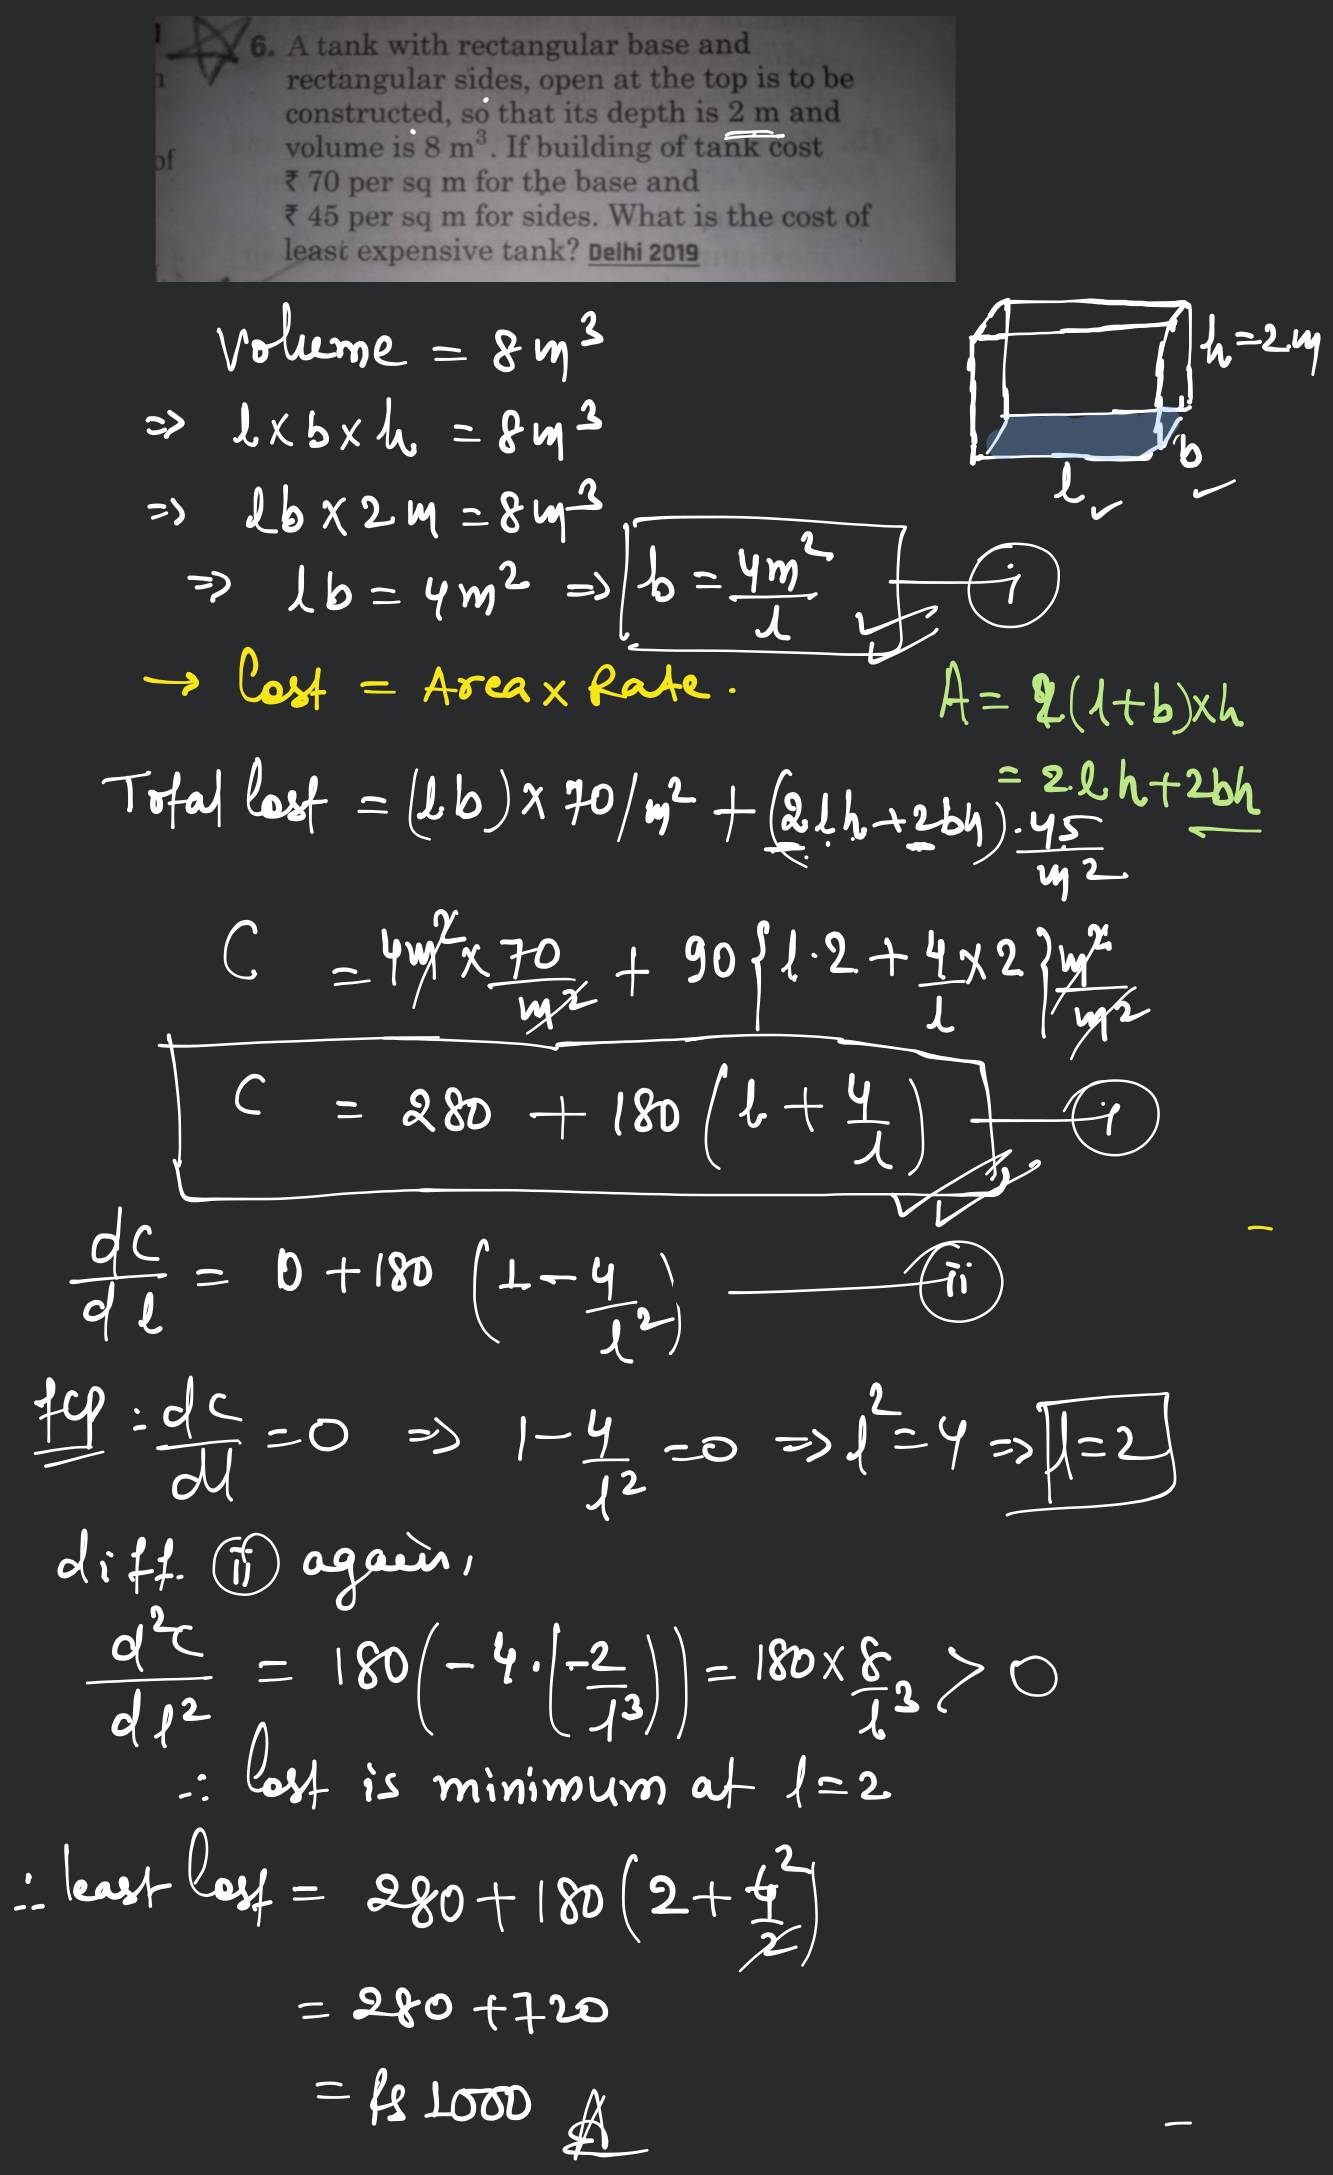 6. A tank with rectangular base and
rectangular sides, open at the top is to be
constructed, so that its depth is 2 m and
of
volume is 8 m³. If building of tank cost
₹ 70 per sq m for the base and
₹ 45 per sq m for sides. What is the cost of
least expensive tank? Delhi 2019
volume = 8 m³
h = 2m
⇒ l × b × h = 8m³
b
l
⇒ lb × 2m = 8m³
⇒ lb = 4m² ⇒ b = 4m²/l — i
→ Cost = Area × Rate.
A = 2(l+b)×h
= 2lh + 2bh
Total Cost = (lb) × 70/m² + (2lh + 2bh) · 45/m²
C = 4m² × 70/m² + 90 { l·2 + 4/l × 2 } m²/m²
C = 280 + 180 (l + 4/l) — i
dC/dl = 0 + 180 (1 − 4/l²) — ii
fcp : dC/dl = 0 ⇒ 1 − 4/l² = 0 ⇒ l² = 4 ⇒ l = 2
diff. ii again,
d²C/dl² = 180 (−4 · (−2/l³)) = 180 × 8/l³ > 0
∴ Cost is minimum at l = 2
∴ least Cost = 280 + 180 (2 + 4/2) 2
= 280 + 720
= Rs 1000 A